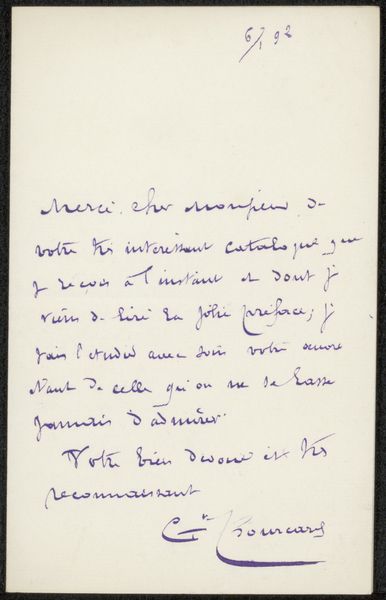 6/1 92
Merci, cher Monsieur, de
votre très intéressant catalogue que
je reçois à l'instant et dont je
viens de lire la jolie préface; je
vais l'étudier avec soin votre œuvre
étant de celle qu'on ne se lasse
jamais d'admirer.
Votre bien dévoué et très
reconnaissant
Bourcard